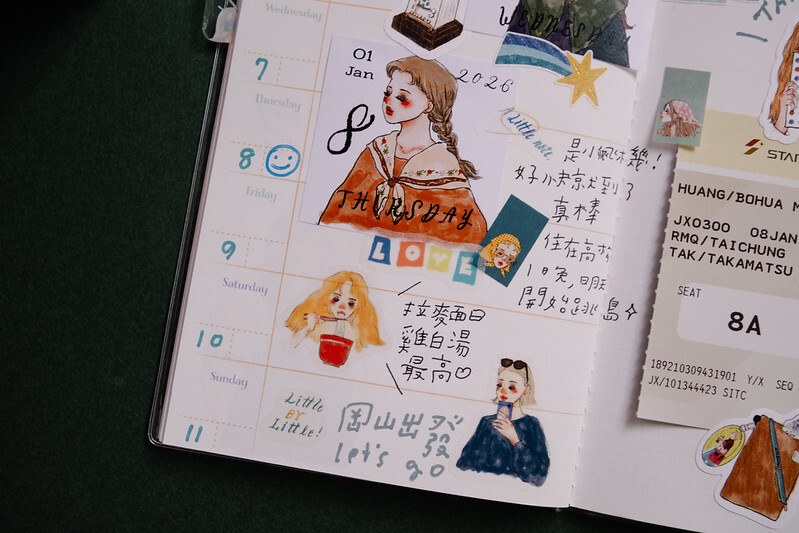 Wednesday
WEDNESDAY
7
Thursday
01
Jan
2026
8
THURSDAY
8
A Little note
是小瓶妹幾！
好小決京尤到了
真棒
住在高
1日免，明
開始跳島
LOVE
Friday
9
Saturday
拉麵
雞白湯
最高♡
10
Sunday
Little
BY
Little!
岡山出發
let's go
11
STAR
HUANG/BOHUA M
JX0300 08JAN
RMQ/TAICHUNG
TAK/TAKAMATSU
SEAT
8A
189210309431901 Y/X SEQ
JX/101344423 SITC